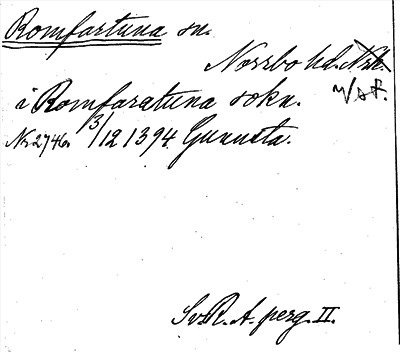 Romfartuna sn.
Norrbo hd. Nrk.
Vstm.
i Romfaratuna sokn.
Nr 2746. 3/12 1394. Gunusta.
Sv. R. A. perg. II.